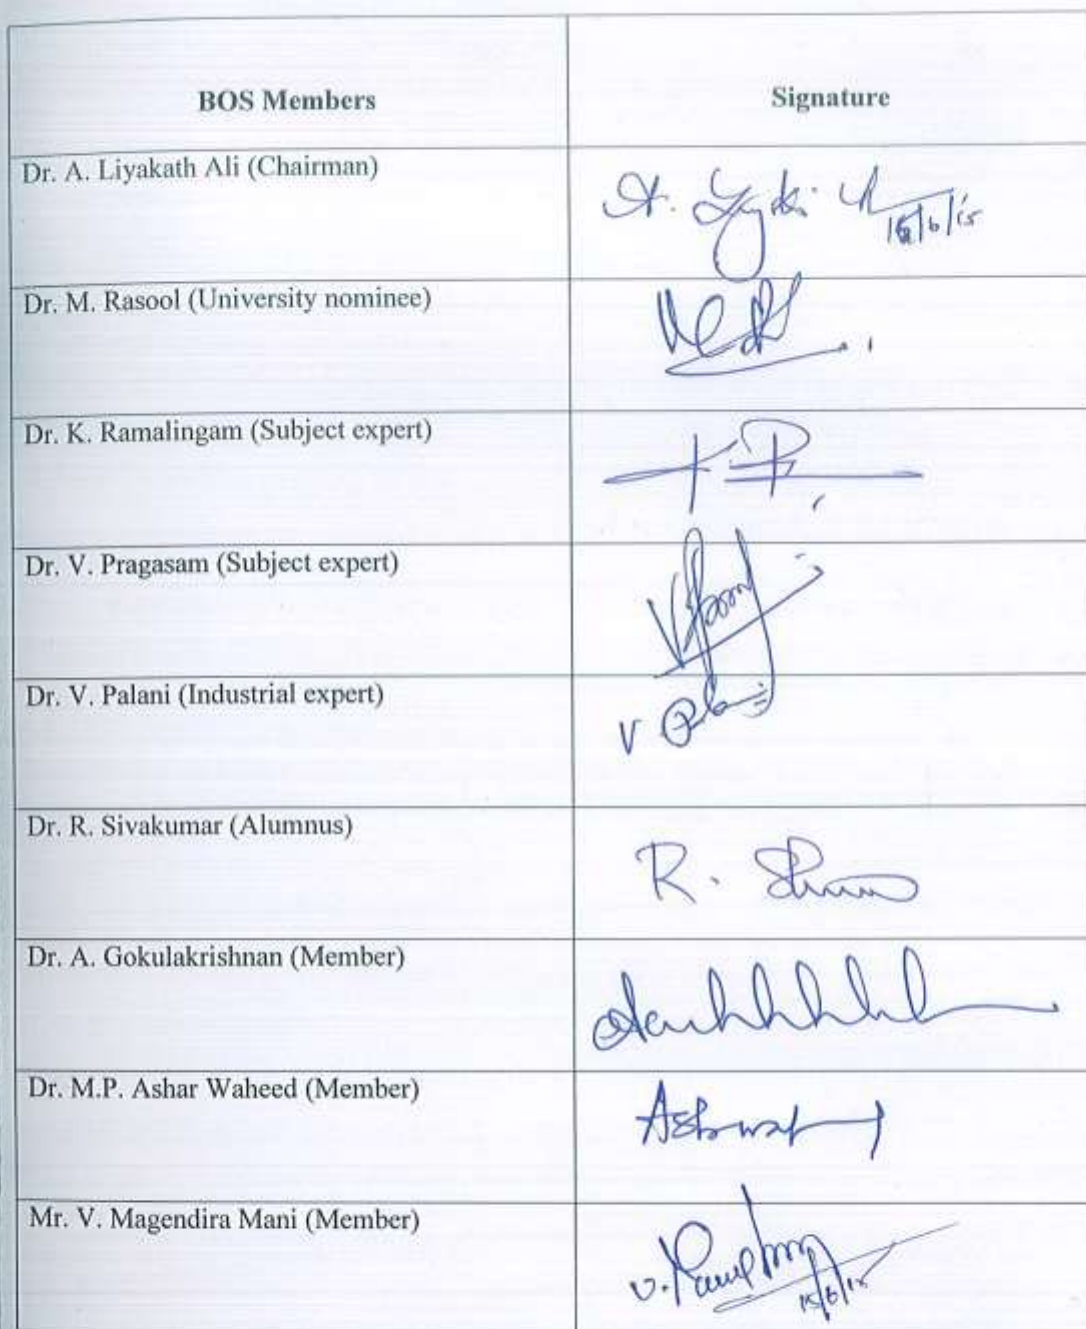 BOS Members Signature
Dr. A. Liyakath Ali (Chairman)
Dr. M. Rasool (University nominee)
Dr. K. Ramalingam (Subject expert)
Dr. V. Pragasam (Subject expert)
Dr. V. Palani (Industrial expert)
V
Dr. R. Sivakumar (Alumnus)
R.
Dr. A. Gokulakrishnan (Member)
Dr. M.P. Ashar Waheed (Member)
Mr. V. Magendira Mani (Member)
15/6/15